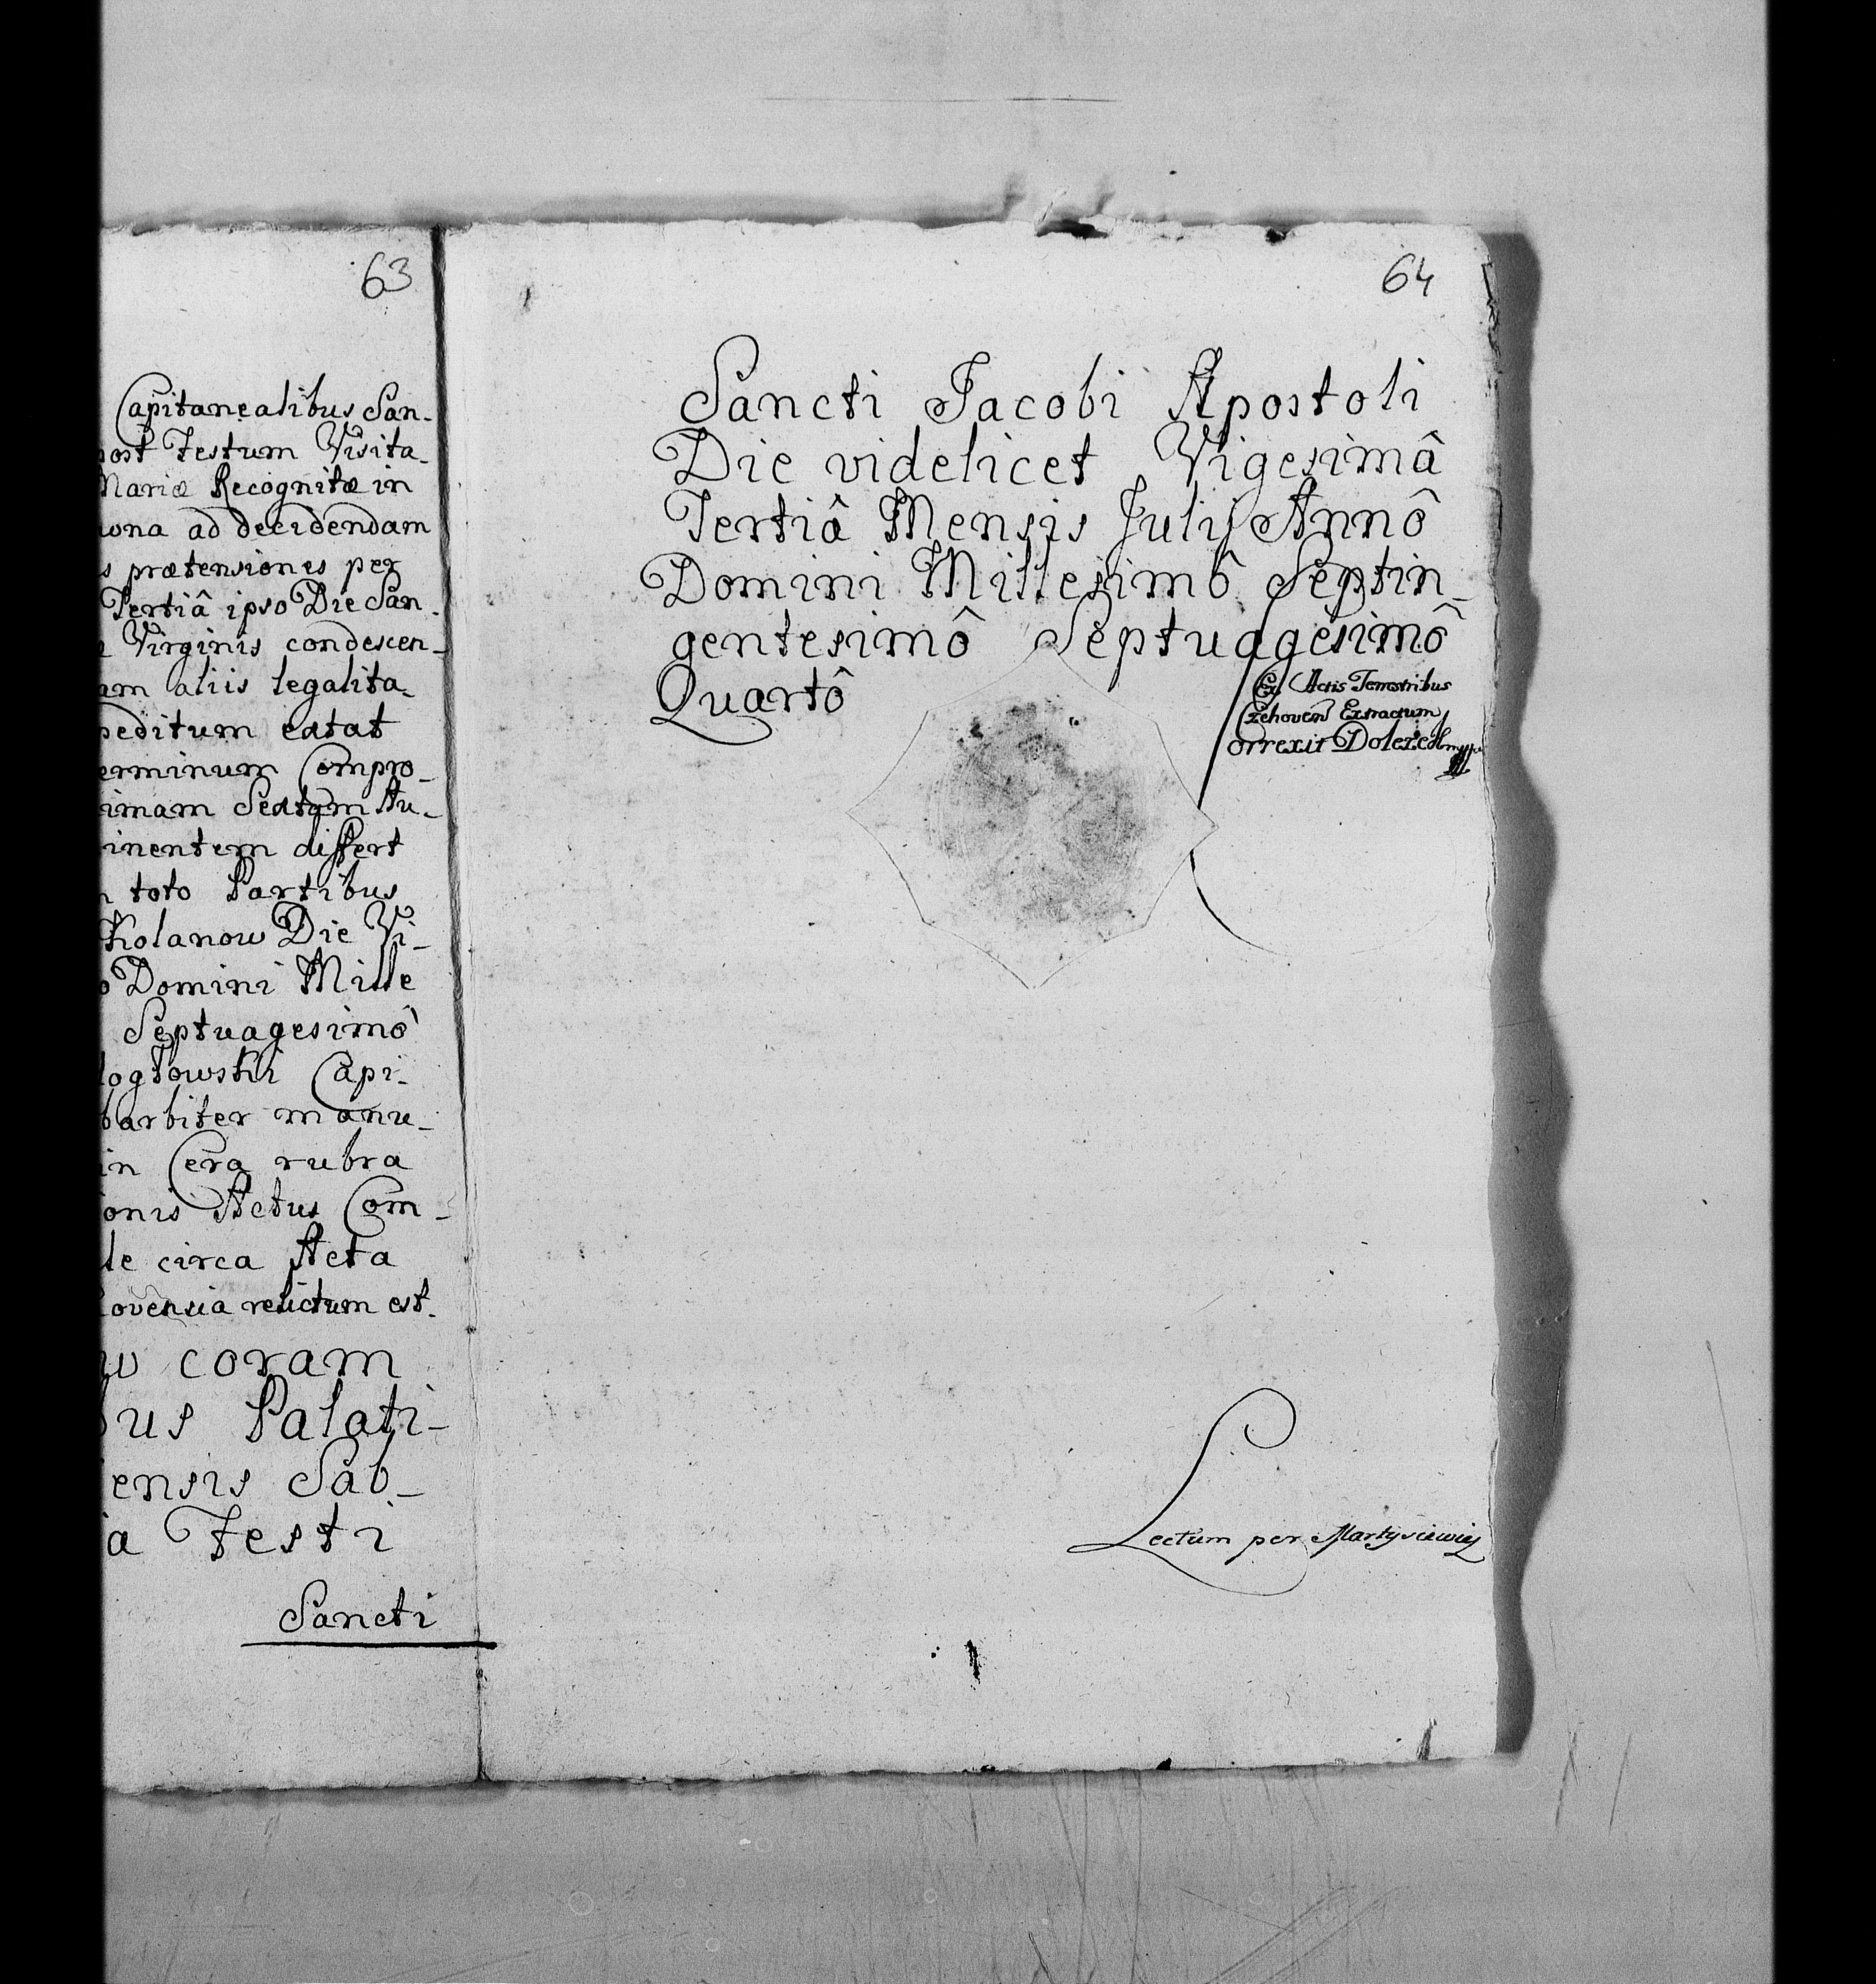 63
Capitanealibus San-
post Festum Visita-
Mariæ Recognitæ in
ad decidendam
prætensiones per
Tertiâ ipso Die San-
Virginis condescen-
aliis legalita-
extat
Compro-
Sextam Au-
differt
toto Partibus
Kolanow Die Vi-
Domini Mille
Septuagesimô
Capi-
manu-
in Cera rubra
Actus Com-
circa Acta
relictum est.
coram
Palati-
Sab-
Festi
Sancti
64
Sancti Jacobi Apostoli
Die videlicet Vigesimâ
Tertiâ Mensis Julij Annô
Domini Millesimô Septin-
gentesimô Septuagesimô
Quartô
Ex Actis Terrestribus
Czchoven Extractum
Correxit Doleżel mpp
Lectum per Martysiewicz